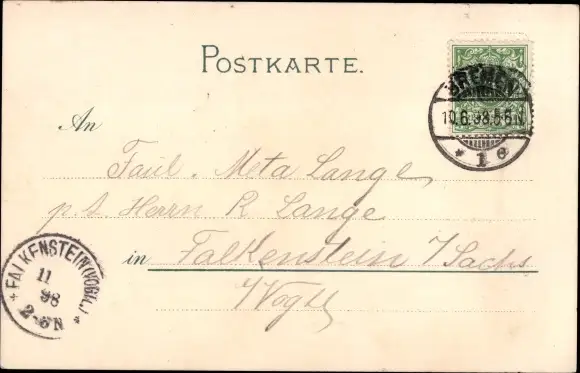 POSTKARTE.
BREMEN
10.6.98.5-6N
* 1 e
An
Fräul. Meta Lange
p. A. Herrn R Lange
in Falkenstein i/Sachs
i/Vogtl
FALKENSTEIN (VOGTL.)
11
98
2-6N